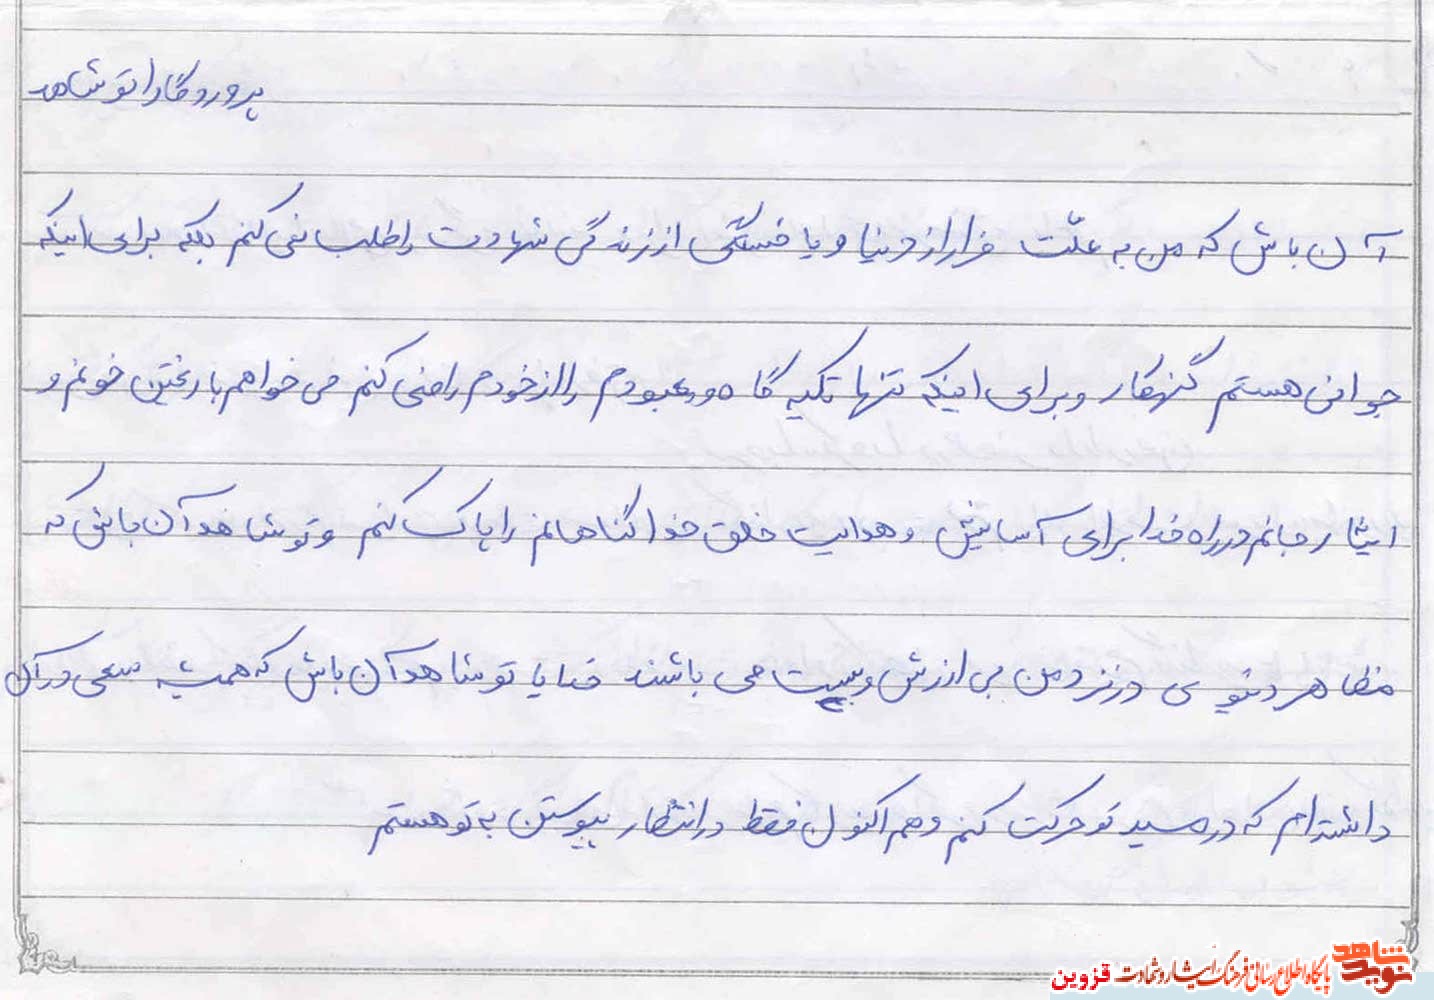 پروردگارا تو شاهد
آن باش که من به علّت فرار از دنیا و یا خستگی از زندگی شهادت را طلب نمی کنم بلکه برای اینکه
جوانی هستم گنهکار و برای اینکه تنها تکیه گاه و معبودم را از خودم راضی کنم می خواهم با ریختن خونم و
ایثار جانم در راه خدا برای آسایش و هدایت خلق خدا گناهانم را پاک کنم و تو شاهد آن باش که
مظاهر دنیوی در نزد من بی ارزش و پست می باشند خدایا تو شاهد آن باش که همیشه سعی در آن
داشته ام که در مسیر تو حرکت کنم و هم اکنون فقط در انتظار پیوستن به تو هستم
نوید شاهد
پایگاه اطلاع رسانی فرهنگ ایثار و شهادت قزوین